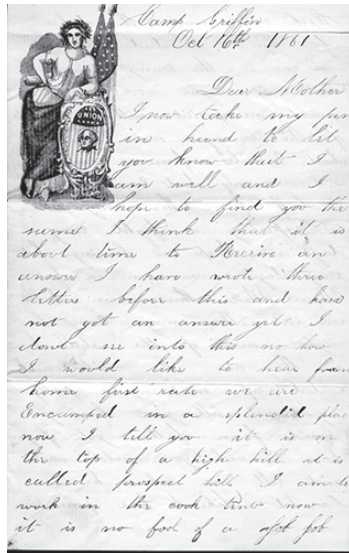 Camp Griffin
Oct 16th 1861
Dear Mother
I now take my pen
in hand to let
you know that I
am well and I
hope to find you the
same I think that it is
about time to Receive an
answer I have wrote three
letters before this and have
not got an answer yet I
dont see into this no how
I would like to hear from
home first rate we are
Encamped in a splendid place
now I tell you it is on
the top of a high hill it is
called prospect hill I am to
work in the cook tent now
it is no fool of a job
UNION